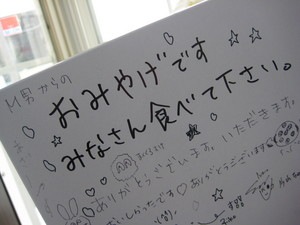 M男からの
おみやげです
みなさん食べて下さい。
ありがとうございます。いただきます。
おいしかったです♡ ありがとうございます